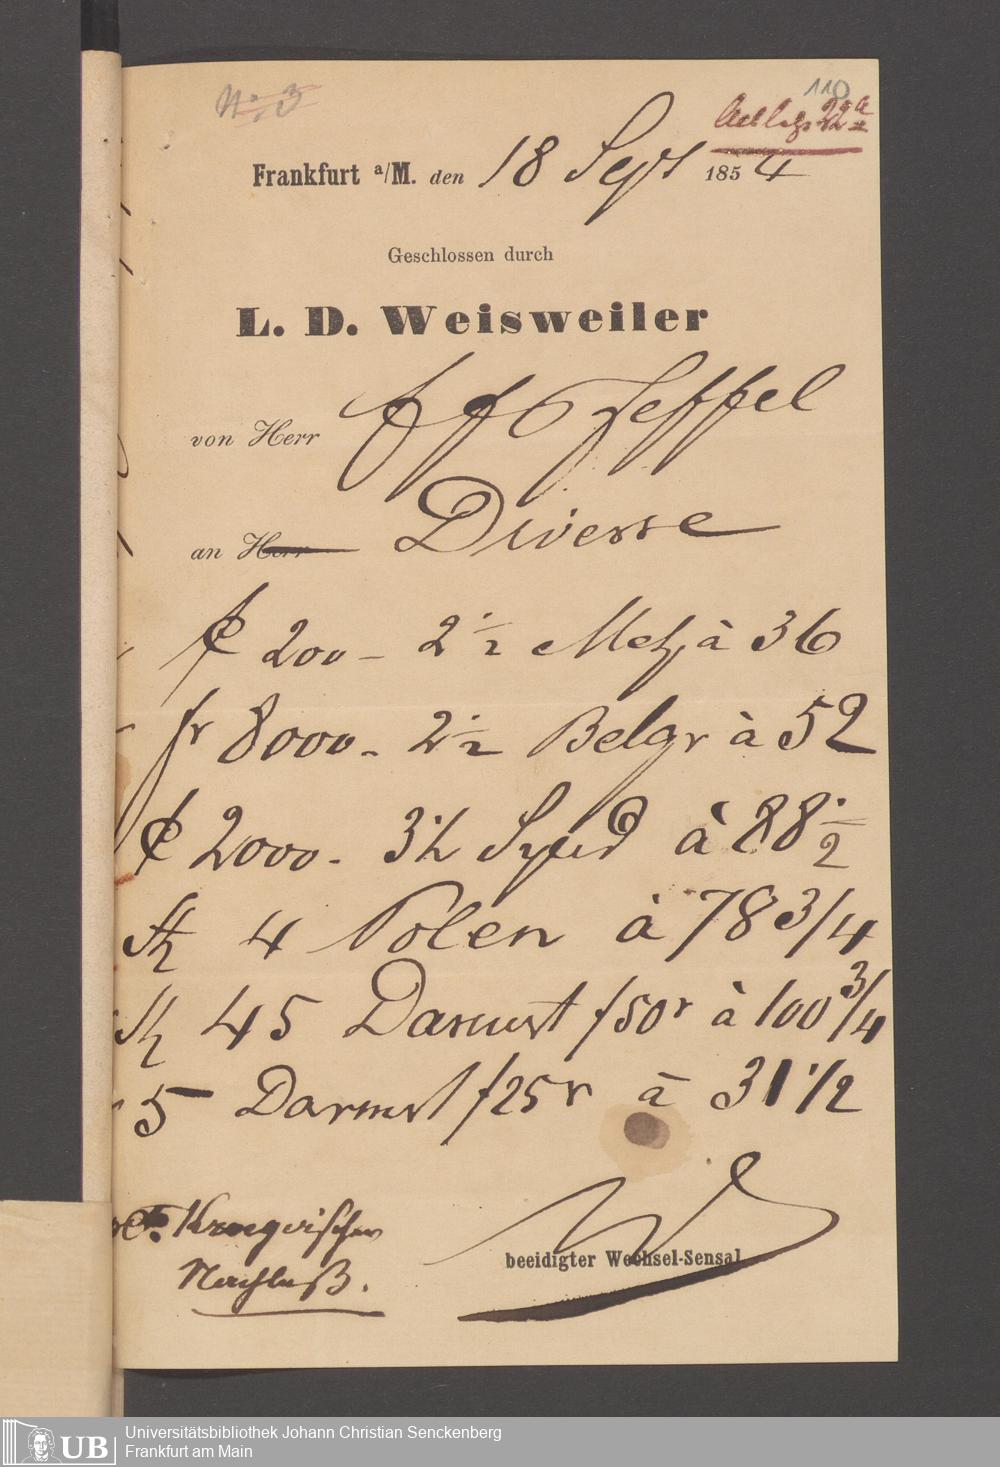 No. 3
110
Frankfurt a/M. den 18 Sept 1854
Geschlossen durch
L. D. Weisweiler
von Herr
an Herr Diverse
200 - 2 1/2 Metz à 36
fr 8000 - 2 1/2 Belgr à 52
2000 - 3 1/2 à 88 1/2
St 4 Polen à 78 3/4
St 45 Darmst f 50r à 100 3/4
5 Darmst f 25r à 31 1/2
Nachlaß.
beeidigter Wechsel-Sensal
UB
Universitätsbibliothek Johann Christian Senckenberg
Frankfurt am Main